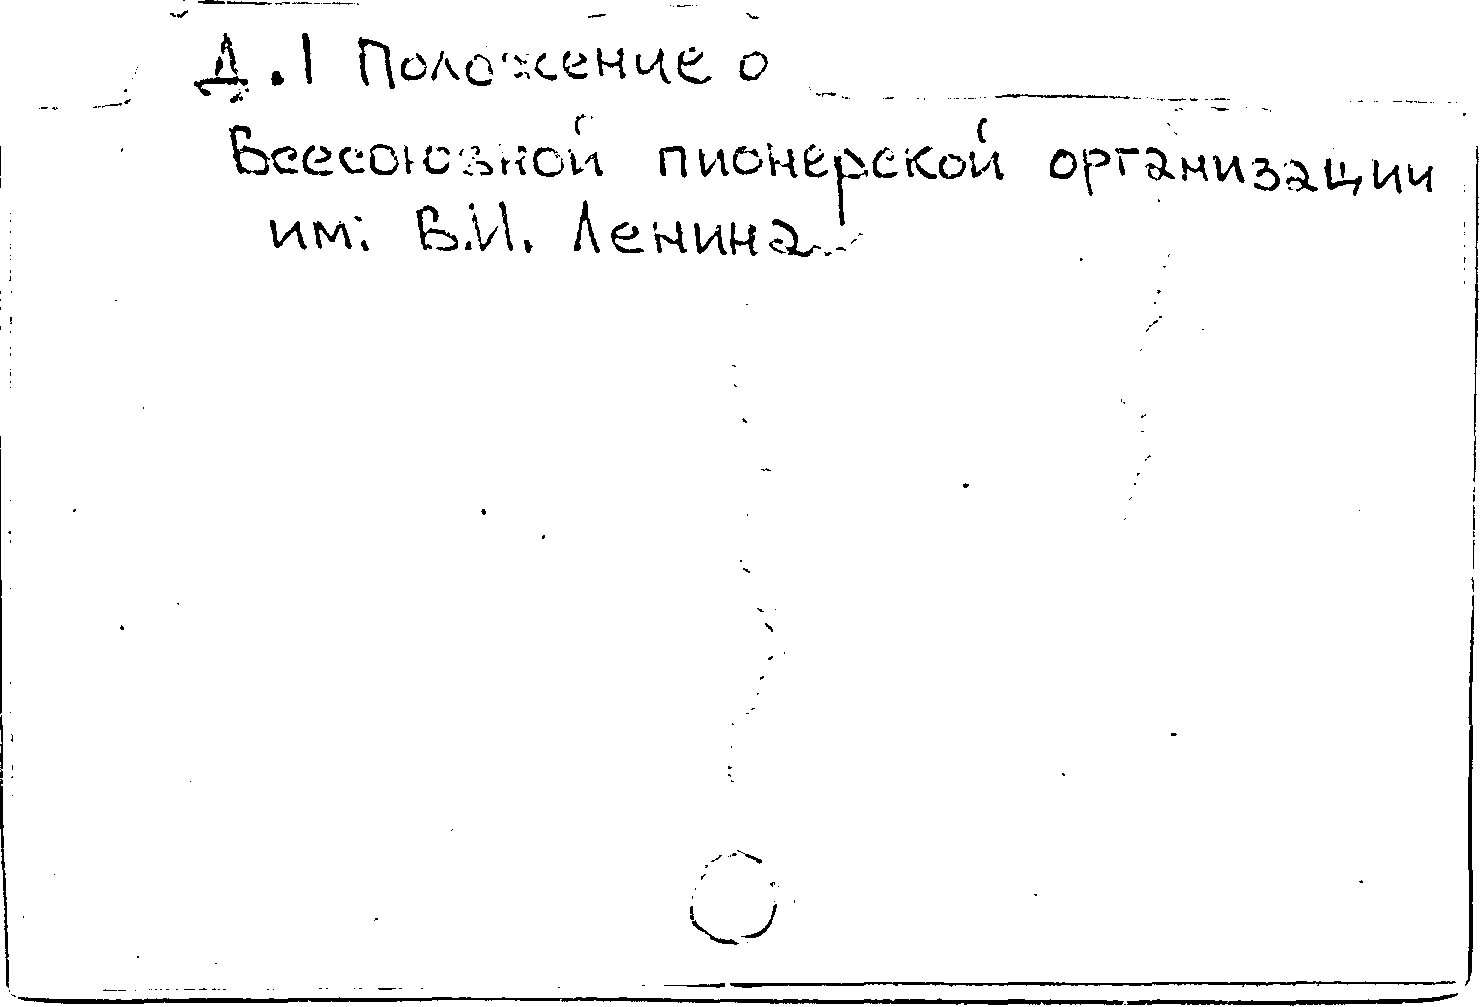 Д.1 Положение о
Всесоюзной пионерской организации
им. В.И. Ленина